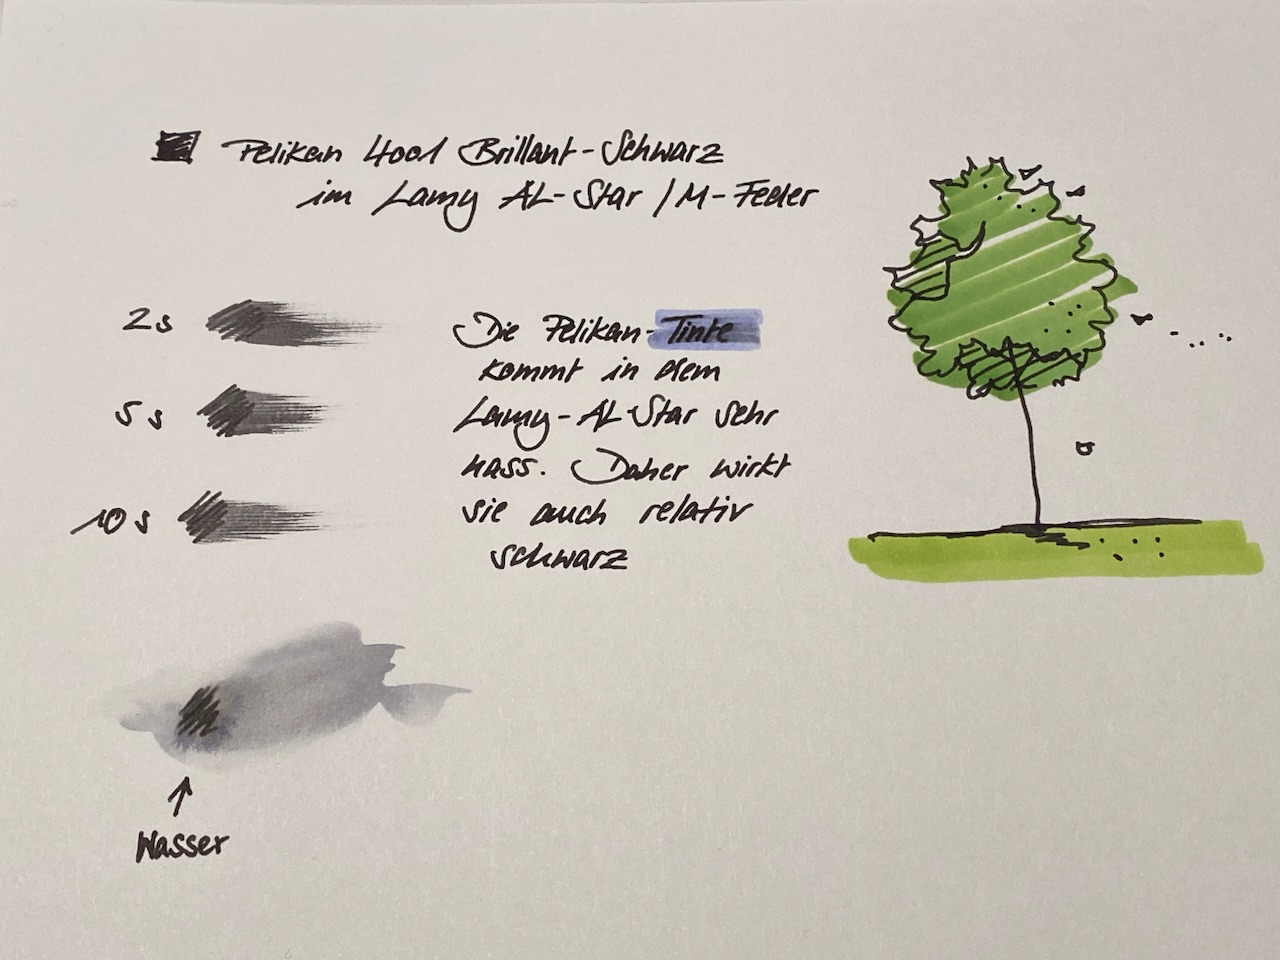 Pelikan 4001 Brillant-Schwarz
im Lamy AL-Star / M-Feder
2s
5s
10s
Die Pelikan-Tinte
kommt in dem
Lamy-AL-Star sehr
nass. Daher wirkt
sie auch relativ
schwarz
Wasser